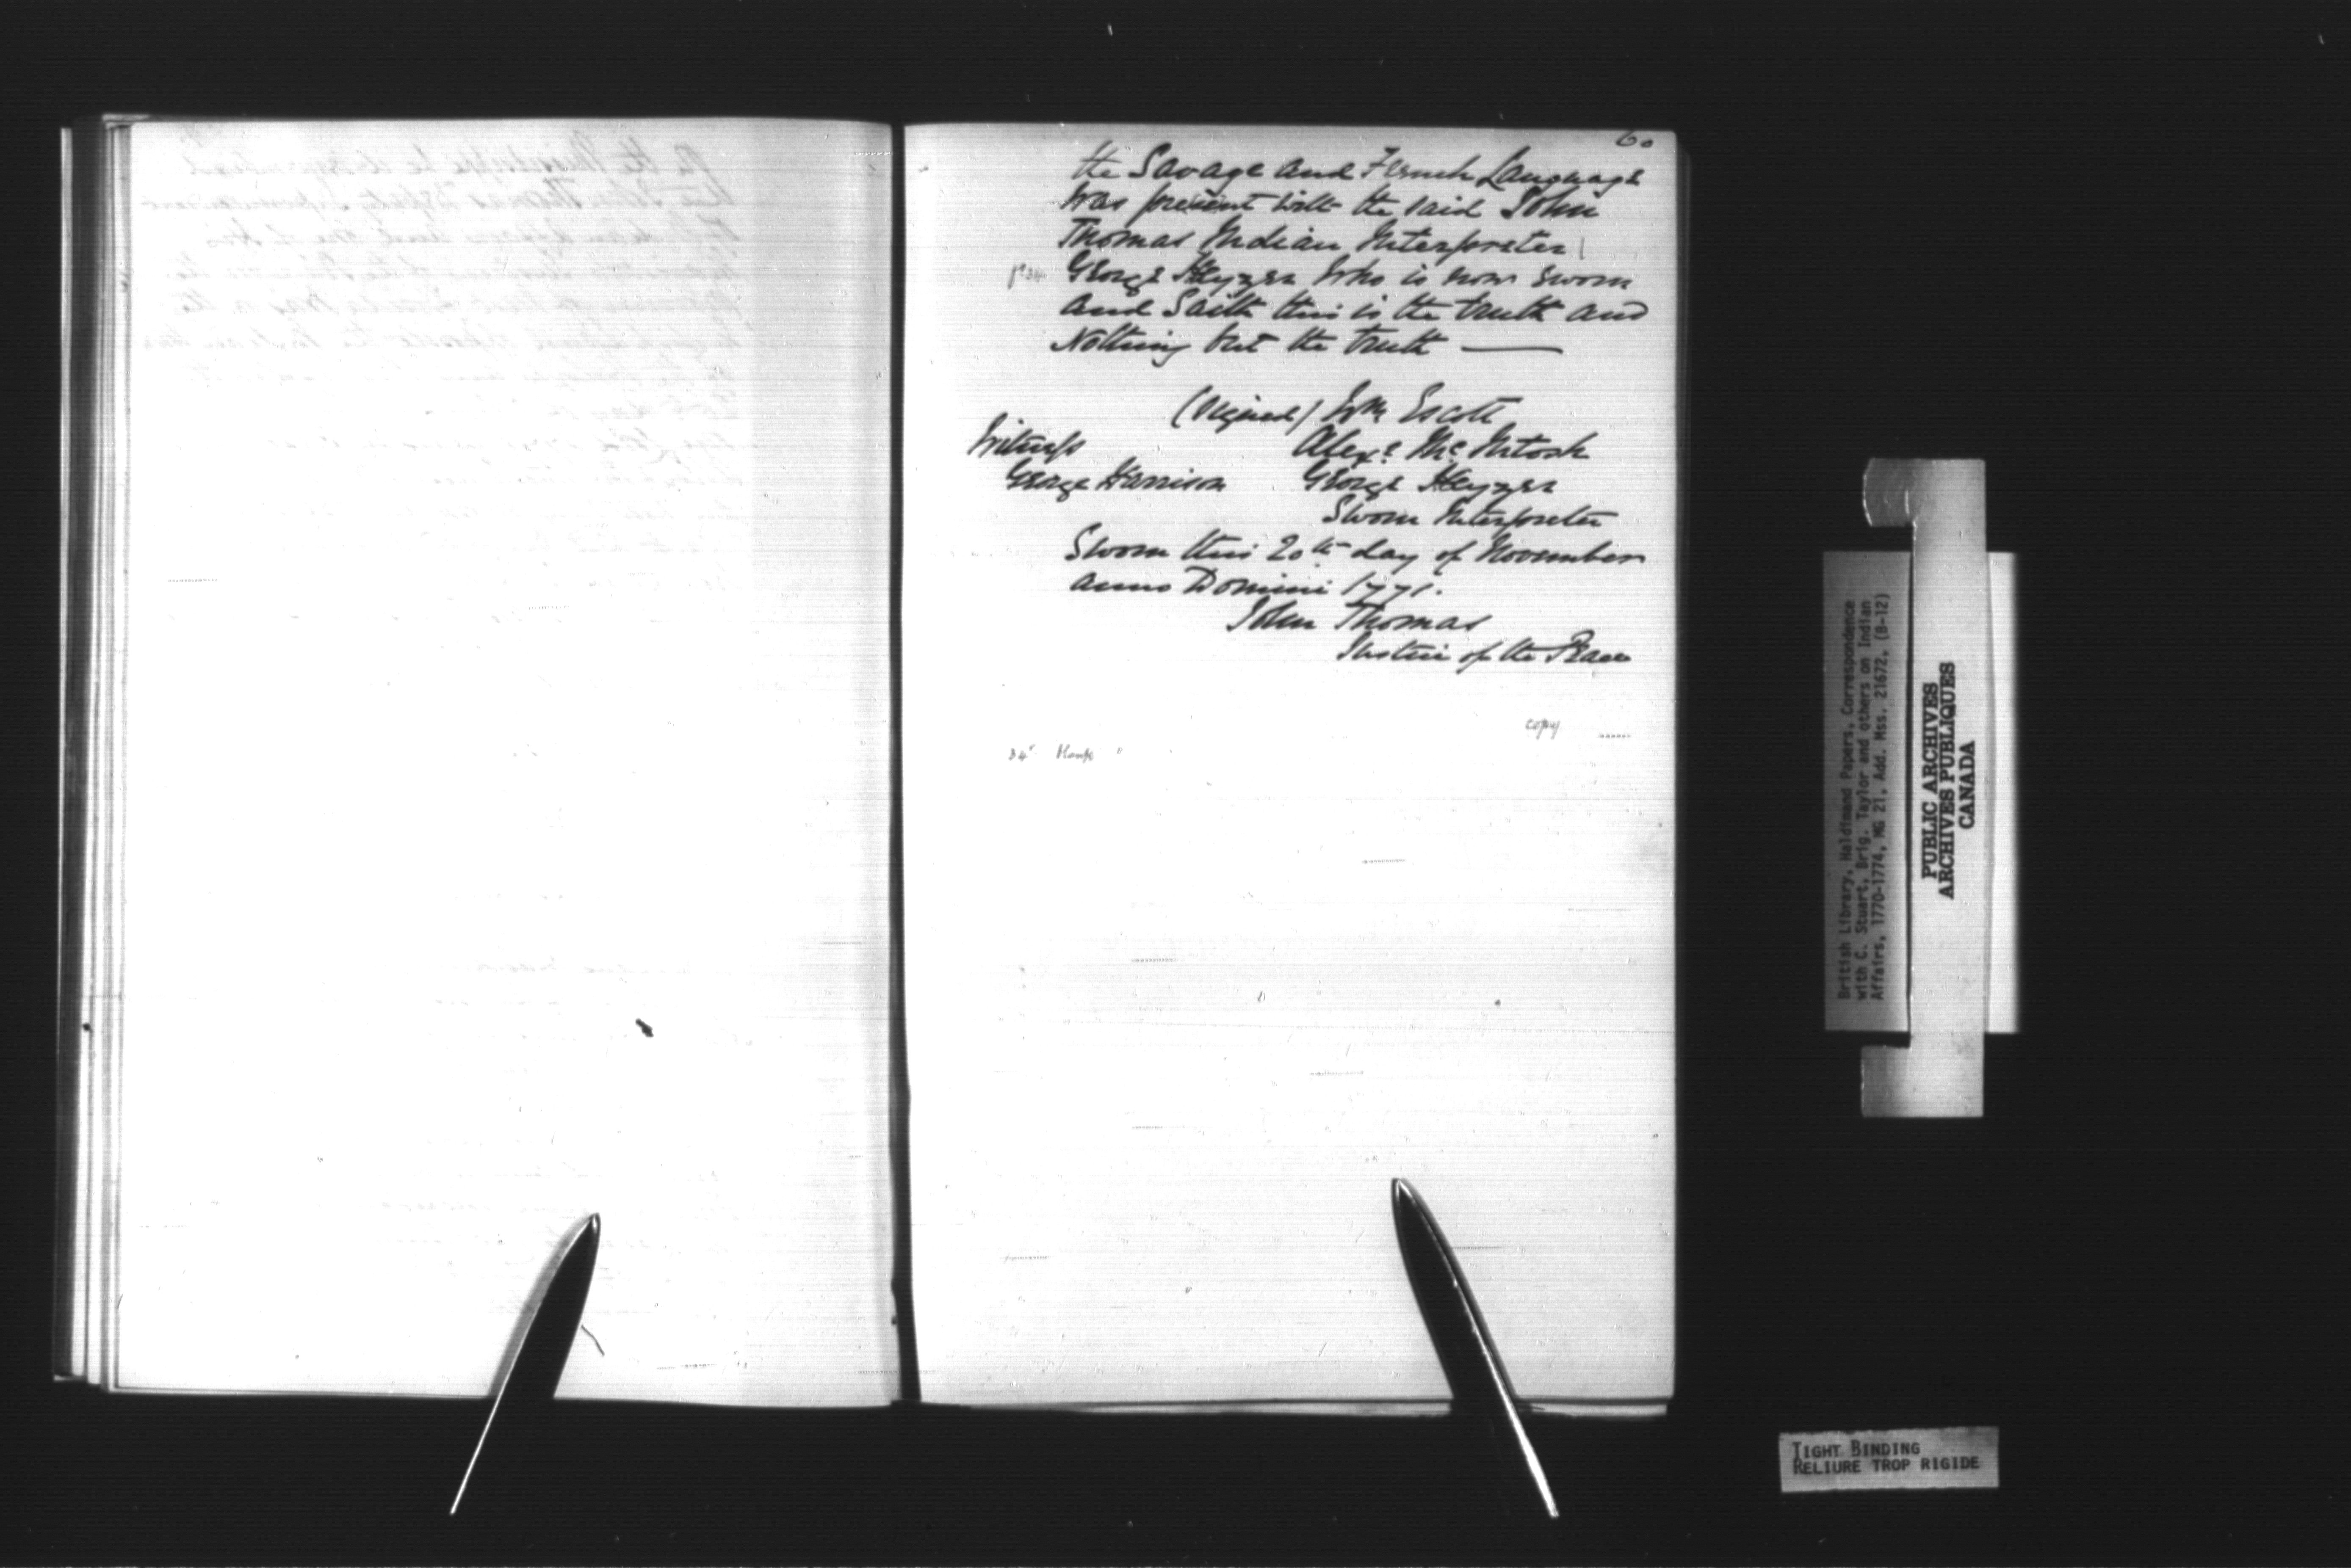 60
the Savage and French Language
was present with the said John
Thomas Indian Interpreter
George Keyzer who is now sworn
and Saith this is the truth and
Nothing but the truth —
(Signed) Wm Escott
Witness Alexr McIntosh
George Harrison George Keyzer
Sworn Interpreter
Sworn this 20th day of November
anno Domini 1771.
John Thomas
Justice of the Peace
copy
34v blank
British Library, Haldimand Papers, Correspondence
with C. Stuart, Brig. Taylor and others on Indian
Affairs, 1770-1774, MG 21, Add. Mss. 21672, (B-12)
PUBLIC ARCHIVES
ARCHIVES PUBLIQUES
CANADA
TIGHT BINDING
RELIURE TROP RIGIDE